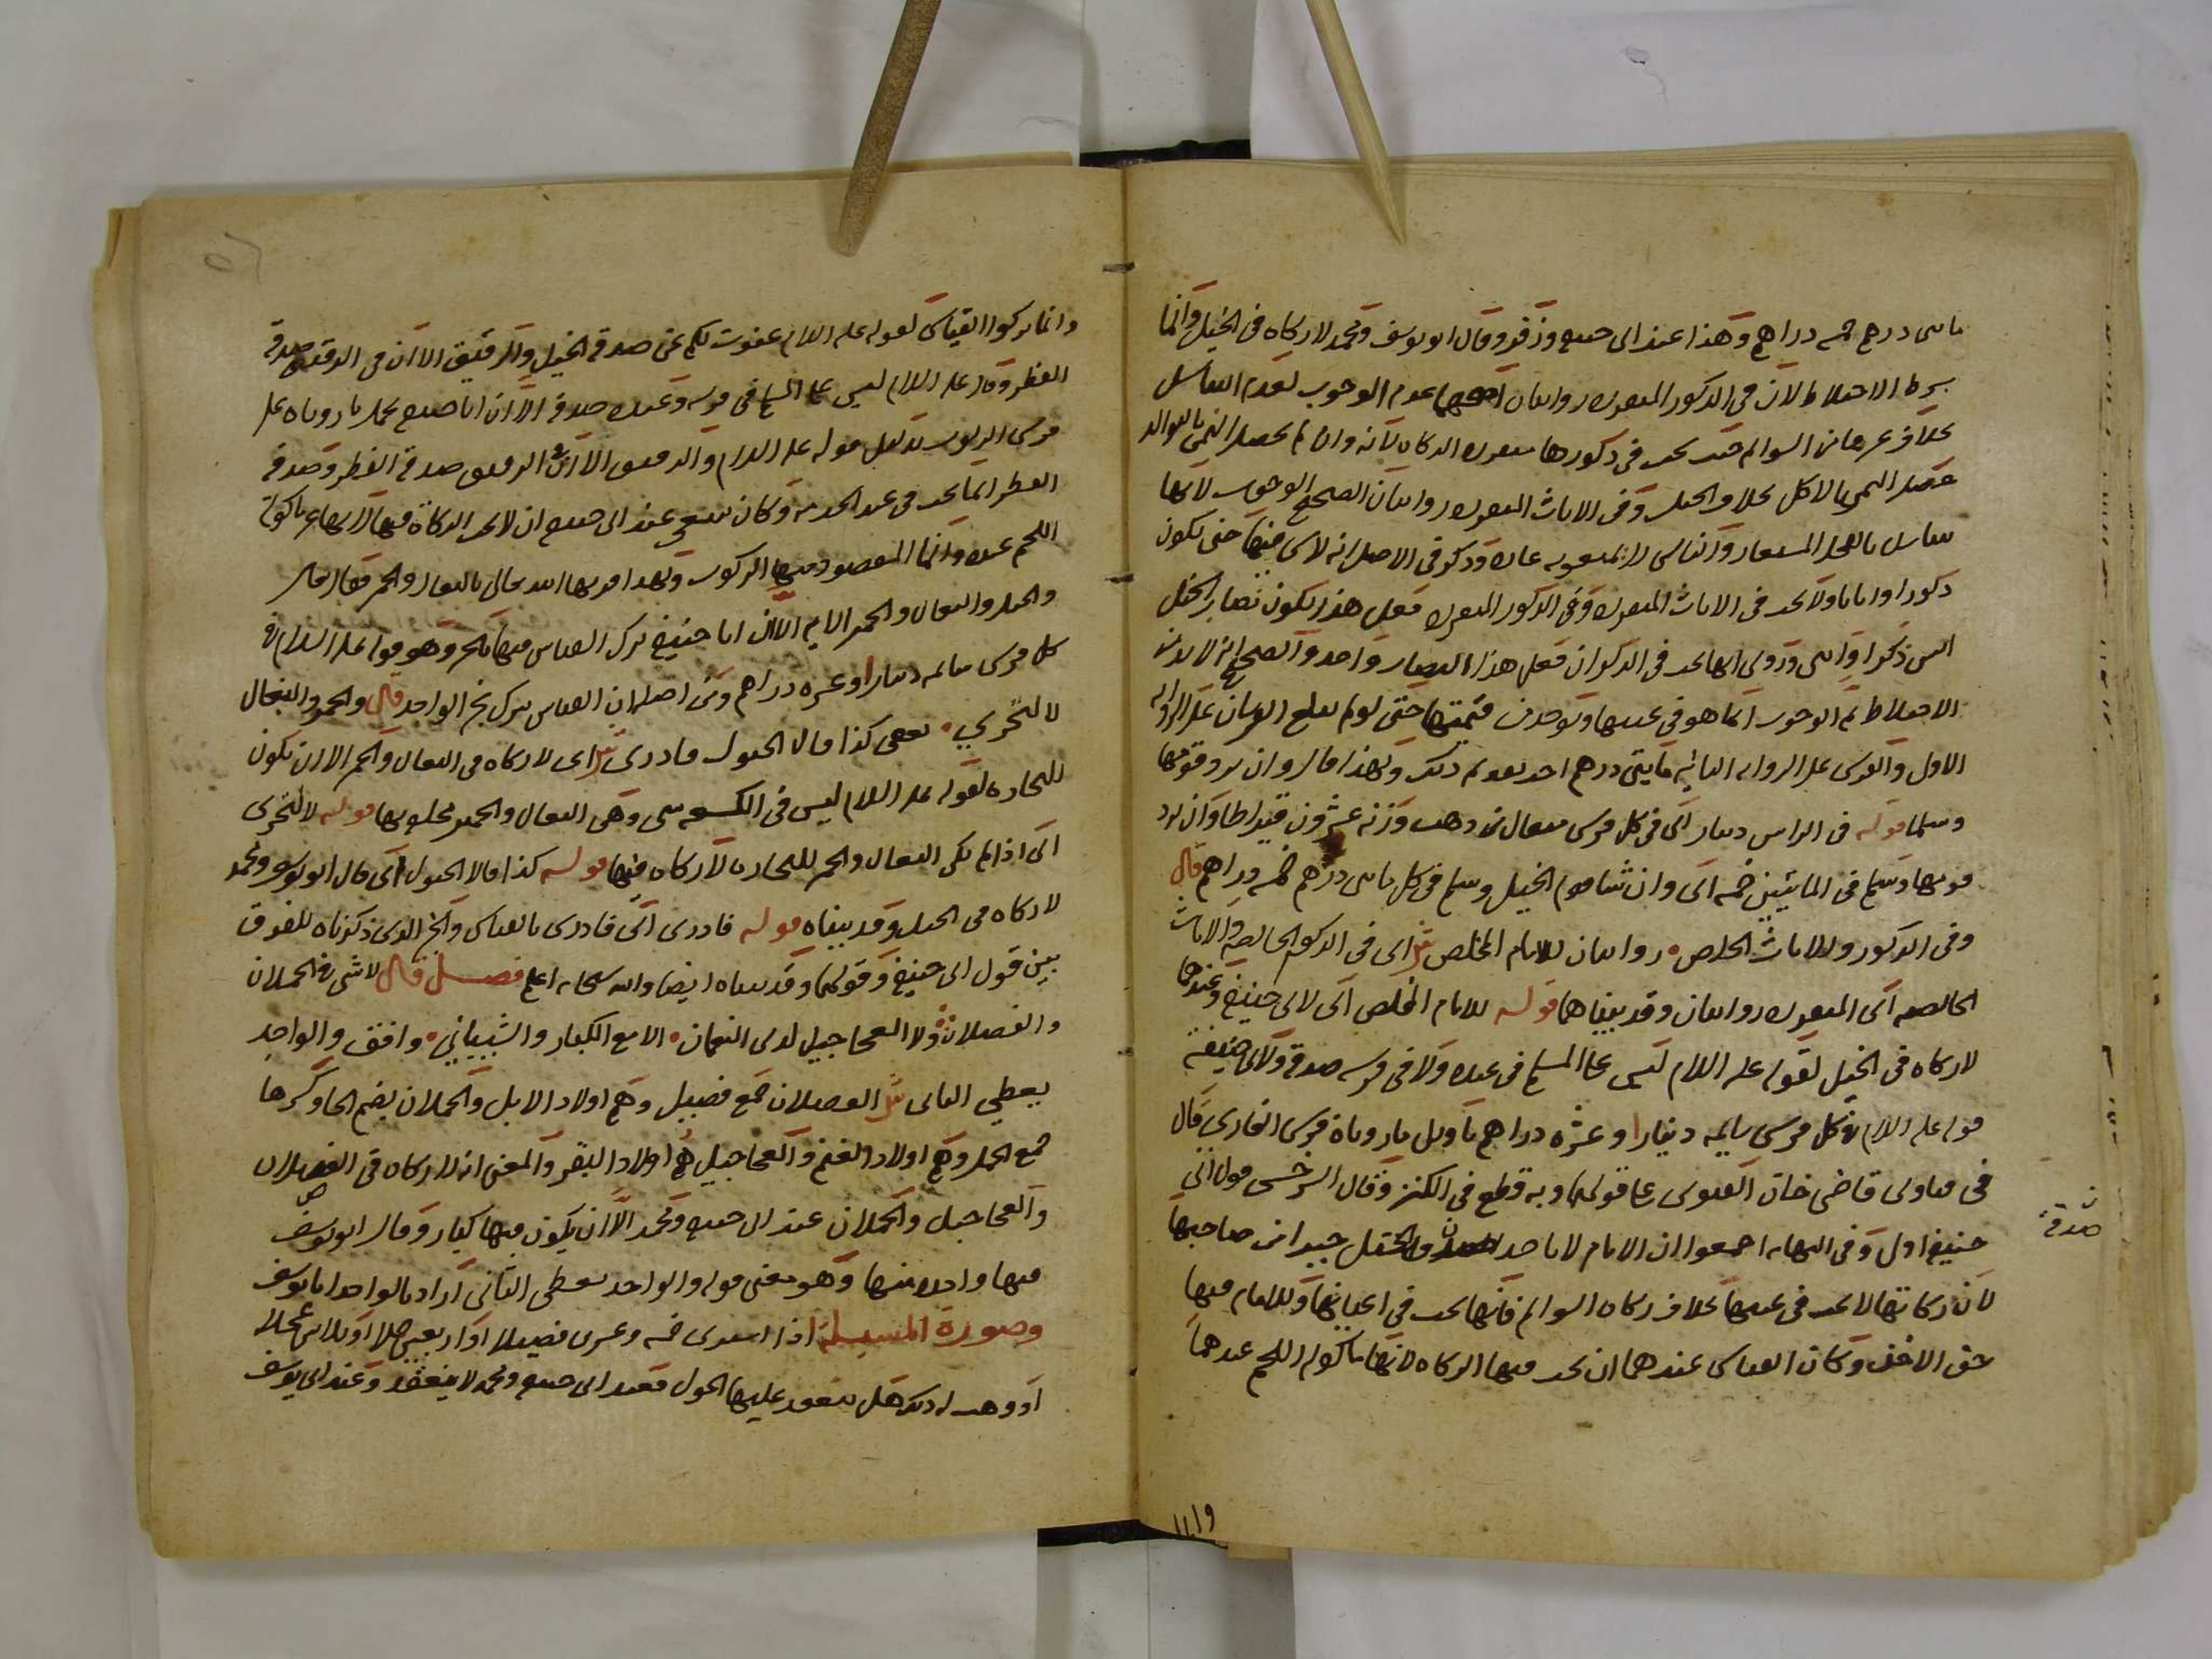 مائتى درهم خمسه دراهم وهذا عند ابى حنيفه وزفر وقال ابو يوسف ومحمد لا زكاه فى الخيل وانما
شرط الاختلاط لان فى الذكور المنفرده روايتان عدم الوجوب لعدم التناسل
بخلاف غيرها من السوايم حيث تجب فى ذكورها منفرده الزكاه لانه وان لم يحصل النمى بالتوالد
حصل النمى بالاكل بخلاف الخيل وفى الاناث المنفرده روايتان الصحيح الوجوب لانها
تتناسل بالفحل المستعار والناس لا يمنعونه عاده وذكر فى الاصل انه لا شى فيها حتى تكون
ذكورا واناثا ولا تجب فى الاناث المنفرده وفى الذكور المنفرده فعلى هذا يكون نصاب الخيل
اثنين ذكرا وانثى وروى انها تجب فى الذكران فعلى هذا النصاب واحد والصحيح انه لا بد من
الاختلاط ثم الوجوب انما هو فى عينها ويوخذ من قيمتها حتى لو لم تبلغ الفرسان على الروايه
الاول والفرس على الروايه الثانيه مايتى درهم اخذ بقدر ذلك ولهذا قال وان يرد قومها
وسلما قوله فى الراس دينار اى فى كل فرس مثقال من ذهب وزنه عشرون قيراطا وان يرد
قومها وسلم فى المايتين خمسه اى وان شا قوم الخيل وسلم فى كل مايتى درهم خمسه دراهم قال
وفى الذكور والاناث الخلص روايتان للامام المخلص ش اى فى الذكور الخالصه والاناث
الخالصه اى المنفرده روايتان وقد بيناهما قوله للامام المخلص اى لابى حنيفه وعندهما
لا زكاه فى الخيل لقوله عليه السلام ليس على المسلم فى عبده ولا فى فرسه صدقة ولابى حنيفه
قوله عليه السلام فى كل فرس سايمه دينارا وعشره دراهم تاويل ما روياه فرس الغازى قال
فى فتاوى قاضى خان الفتوى على قولهما وبه قطع فى الكنز وقال السرخسى قول ابى
حنيفه اولى وفى النهايه اجمعوا ان الامام لا ياخذ صدقة الخيل جبرا من صاحبها
لان زكاتها لا تجب فى عينها بخلاف زكاه السوايم فانها تجب فى اعيانها وللامام فيها
حق الاخذ وكان القياس عندهما ان تجب فيها الزكاه لانها ماكوله اللحم عندهما
صدقة
وانما تركوا القياس لقوله عليه السلام عفوت لكم عن صدقة الخيل والرقيق الا ان فى الرقيق صدقة
الفطر وقال عليه السلام ليس على المسلم فى فرسه وعبده صدقة الا ان ابا حنيفه يحمل ما روياه على
فرس الركوب بدليل قوله عليه السلام والرقيق الا ان فى الرقيق صدقة الفطر وصدقة
الفطر انما تجب فى عبد الخدمه وكان ينبغى عند ابى حنيفه ان لا تجب الزكاة فيها لانها غير ماكولة
اللحم عنده وانما المقصود منها الركوب ولهذا قرنها الله تعالى بالبغال والحمر فقال تعالى
والخيل والبغال والحمير الايه الا ان ابا حنيفه ترك القياس فيها بالخبر وهو قوله عليه السلام فى
كل فرس سايمه دينارا وعشره دراهم ومن اصله ان القياس يترك بخبر الواحد قال والحمر والبغال
لا للتجرى يعفى كذا قالا الخيول فادرى ش اى لا زكاه فى البغال والحمر الا ان تكون
للتجاره لقوله عليه السلام ليس فى الكسعه شى وهى البغال والحمير قوله لا للتجرى
اى اذا لم تكن البغال والحمر للتجاره لا زكاه فيها قوله كذا قالا الخيول اى قال ابو يوسف ومحمد
لا زكاه فى الخيل وقد بيناه قوله فادرى اى فادرى بالقياس والخبر الذى ذكرناه للفرق
بين قول ابى حنيفه وقولهما وقد بيناه ايضا والله سبحانه اعلم فصل قال لا شى فى الحملان
والفصلان ولا العجاجيل لدى النعمان الا مع الكبار والشيبانى وافق والواحد
يعطى الثانى ش الفصلان جمع فصيل وهى اولاد الابل والحملان بضم الحا وكسرها
جمع الحمل وهى اولاد الغنم والعجاجيل هى اولاد البقر والمعنى انه لا زكاه فى الفصلان
والعجاجيل والحملان عند ابى حنيفه ومحمد الا ان يكون فيها كبار وقال ابو يوسف
فيها واحده منها وهو معنى قوله والواحد يعطى الثانى اراد بالواحد ابا يوسف
وصورة المسيلة اذا اشترى خمسه وعشرين فصيلا او اربعين حملا او ثلاثين عجلا
او وهب له ذلك هل ينعقد عليها الحول فعند ابى حنيفه ومحمد لا ينعقد وعند ابى يوسف